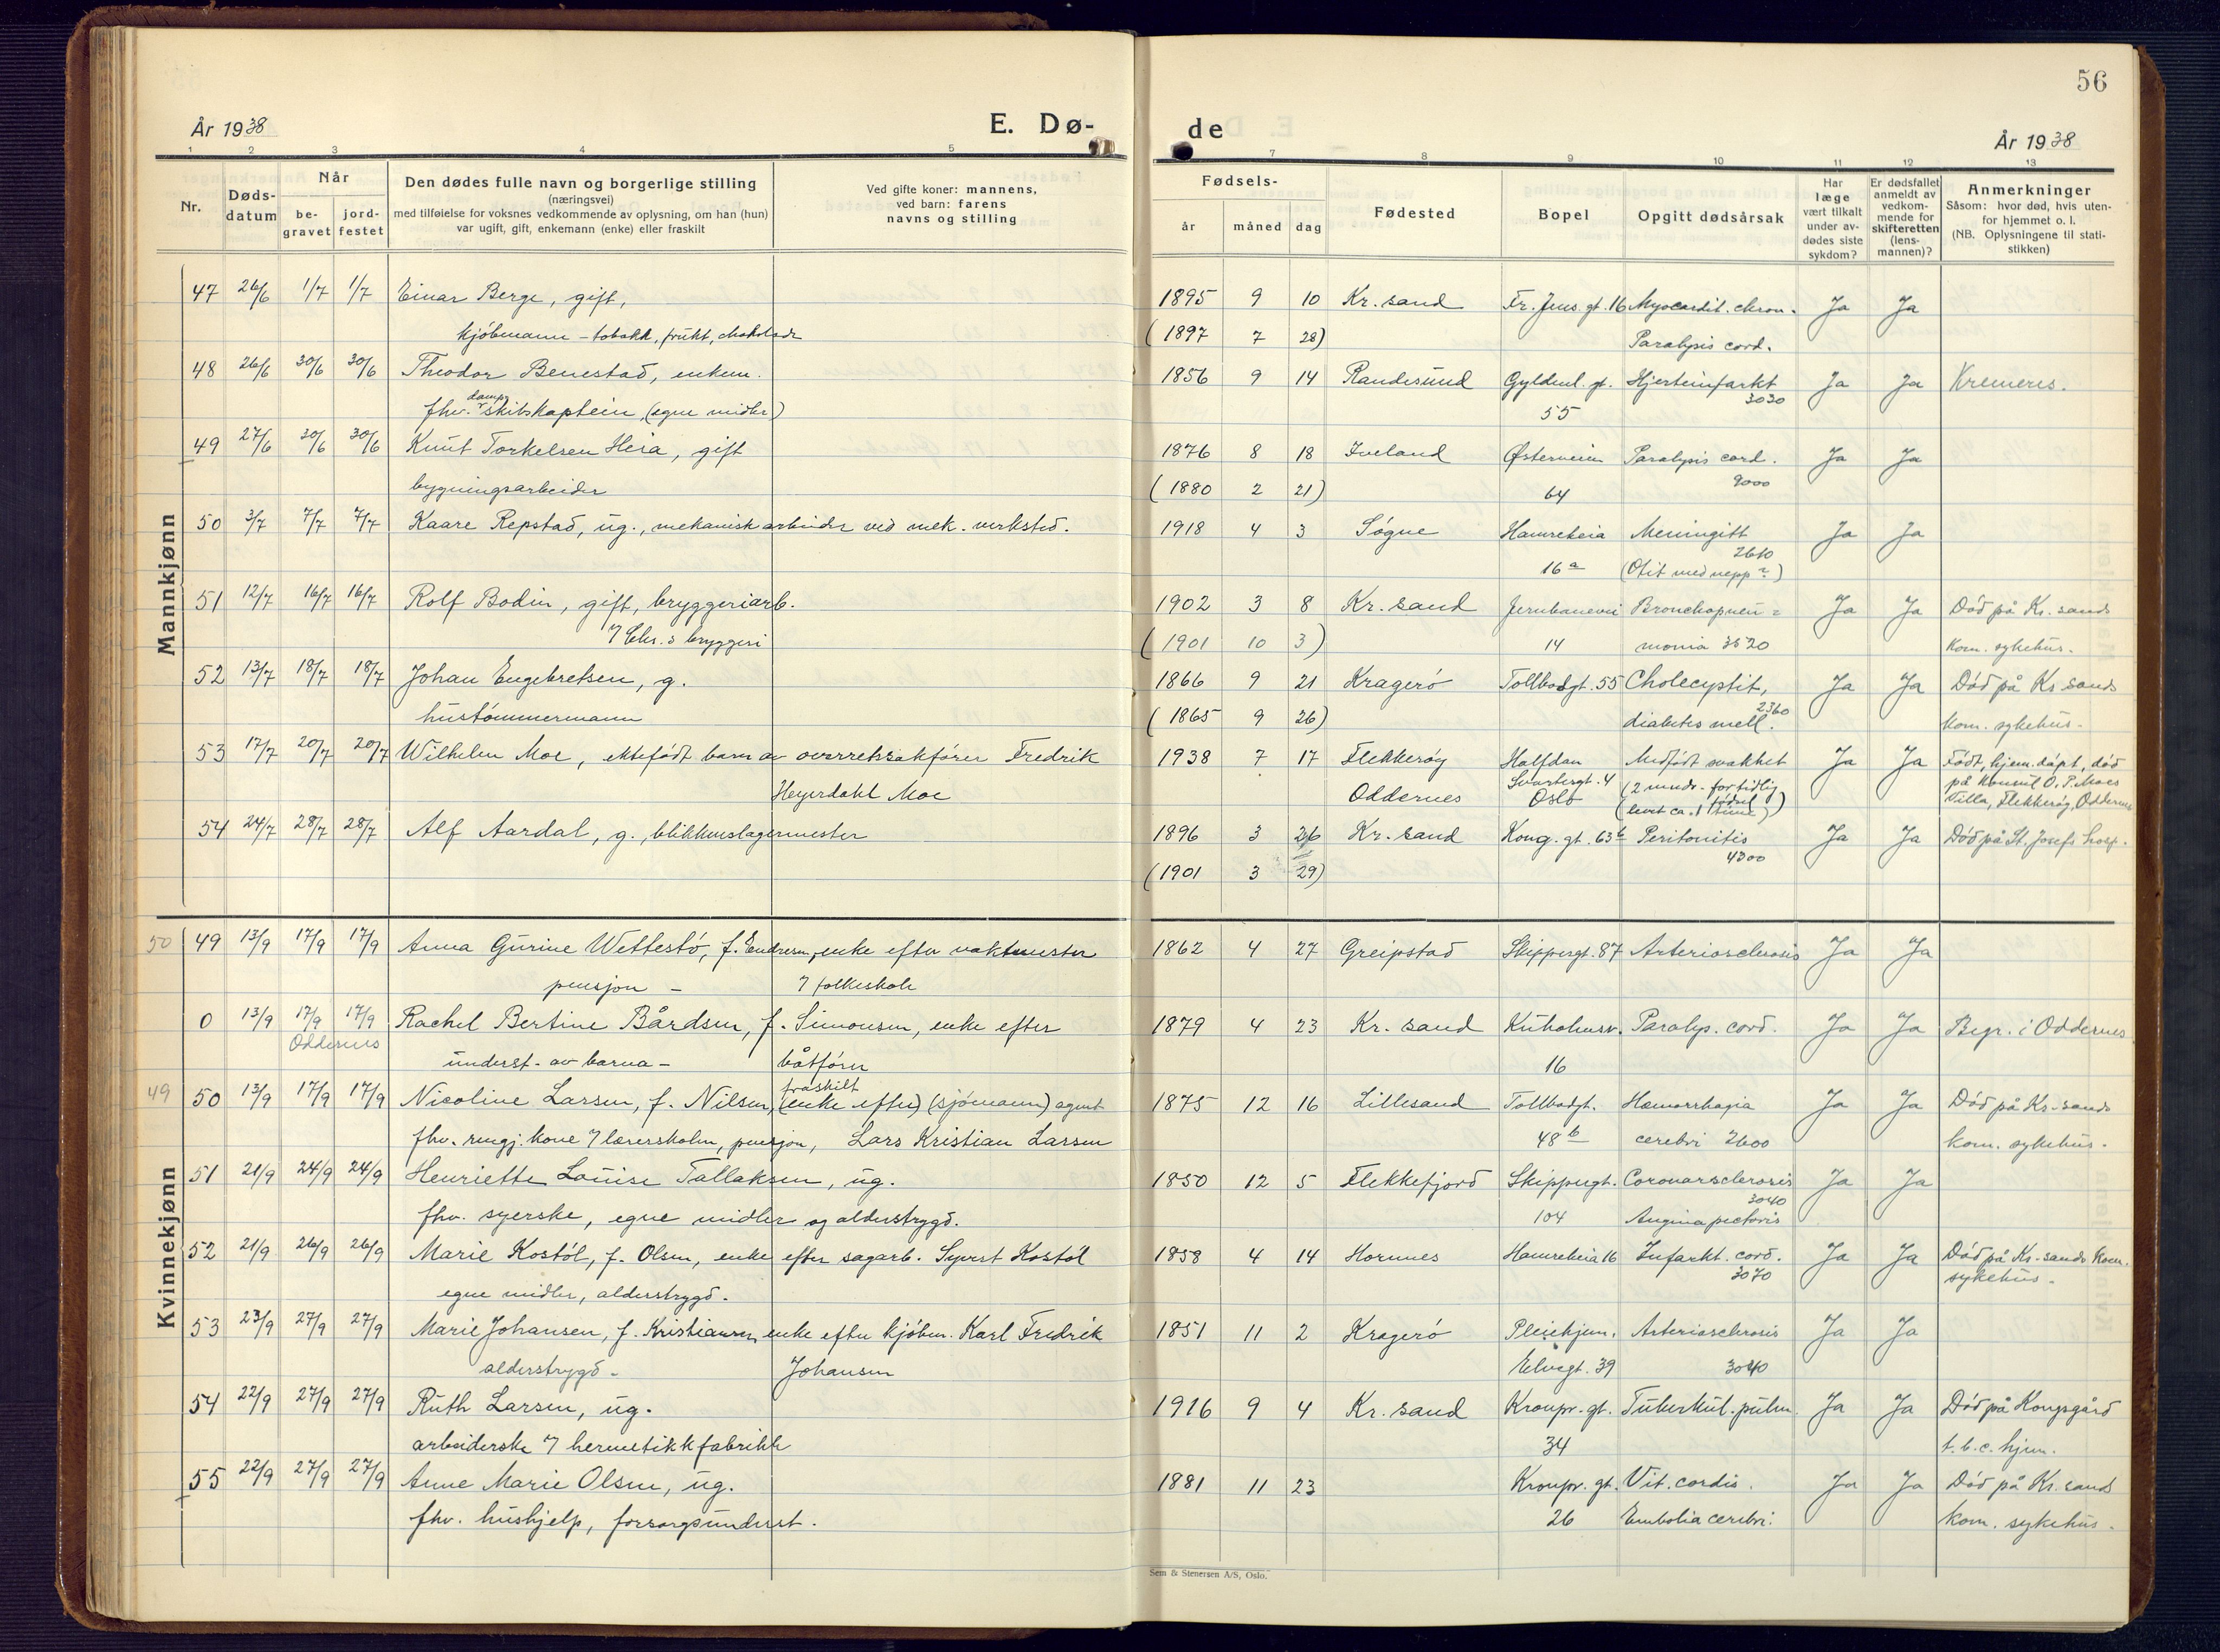 56
År 1938
E. Dø-
de
År 1938
1 2 3 4 5
7 8 9 10 11 12 13
Nr.
Døds-
datum
Når
be-
gravet
jord-
festet
Den dødes fulle navn og borgerlige stilling
(næringsvei)
med tilføielse for voksnes vedkommende av oplysning, om han (hun)
var ugift, gift, enkemann (enke) eller fraskilt
Ved gifte koner: mannens,
ved barn: farens
navns og stilling
Fødsels-
år måned dag
Fødested
Bopel
Opgitt dødsårsak
Har
læge
vært tilkalt
under av-
dødes siste
sykdom?
Er dødsfallet
anmeldt av
vedkom-
mende for
skifteretten
(lens-
mannen)?
Anmerkninger
Såsom: hvor død, hvis uten-
for hjemmet o. l.
(NB. Oplysningene til stati-
stikken)
Mannkjønn
47 26/6 1/7 1/7 Einar Berge, gift, 1895 9 10 Kr. sand Fr. Jens. gt. 16 Myocardit. chron. Ja Ja
kjøbmann - tobakk, frukt, chokolade (1897 7 28) Paralysis cord.
48 26/6 30/6 30/6 Theodor Benestad, enkem. 1856 9 14 Randesund Gyldenl. gt. Hjerteinfarkt Ja Ja Kremeres.
3030
fhv. damp-skibskaptein, (egne midler) 55
49 27/6 30/6 30/6 Knut Torkelsen Heia, gift 1876 8 18 Iveland Østerveien Paralysis cord. Ja Ja
9000
bygningsarbeider (1880 2 21) 64
50 3/7 7/7 7/7 Kaare Repstad, ug., mekanisk arbeider ved mek. verksted. 1918 4 3 Søgne Hamreheia Meningitt Ja Ja
2610
16a (Otit med nepp?)
51 12/7 16/7 16/7 Rolf Bodin, gift, bryggeriarb. 1902 3 8 Kr. sand Jernbanevei Bronchopneu= Ja Ja Död på Kr. sands
Chr.s bryggeri (1901 10 3) 14 monia 3520 kom. sykehus.
52 13/7 18/7 18/7 Johan Engebretsen, g. 1866 9 21 Kragerö Tollbodgt. 55 Cholecystit, Ja Ja Död på Kr sands
2360
hustömmermann (1865 9 26) diabetes mell. kom. sykehus.
53 17/7 20/7 20/7 Wilhelm Moe, ektefödt barn av overretssakfører Fredrik 1938 7 17 Flekkeröy Halfdan Medfödt svakhet Ja Ja Födt, hjem.döpt, död
Heyerdahl Moe Oddernes Svartesgt. 4 (2 mndr. fortidlig på Konsul O. P. Moes
Oslo födsel) Villa, Flekkeröy, Oddernes
(levet ca. 1 time)
54 24/7 28/7 28/7 Alf Aardal, g., blikkenslagermester 1896 3 26 Kr. sand Kong. gt. 63b Peritonitis Ja Ja Död på St. Josefs hosp.
4300
(1901 3 29)
Kvinnekjønn
50 49 13/9 17/9 17/9 Anna Gurine Wettestö, f. Endresen, enke efter vaktmester 1862 4 27 Greipstad Skippergt. 87 Arteriosclerosis Ja Ja
pensjon - folkeskole
0 13/9 17/9 17/9 Rachel Bertine Bårdsen, f. Simonsen, enke efter 1879 4 23 Kr. sand Kuholmsv. Paralys. cord. Ja Ja Begr. i Oddernes
Oddernes
underst. av barna - båtförer 16
49 50 13/9 17/9 17/9 Nicoline Larsen, f. Nilsen, fraskilt (enke efter) (sjömann) agent 1875 12 16 Lillesand Tollbodgt. Hæmorrhagia Ja Ja Död på Kr. sands
fhv. rengj. kone lærerskolen, pensjon, Lars Kristian Larsen 48b cerebri 2600 kom. sykehus.
51 21/9 24/9 24/9 Henriette Louise Tallaksen, ug. 1850 12 5 Flekkefjord Skippergt. Coronarsclerosis Ja Ja
3040
fhv. syerske, egne midler og alderstrygd. 104 Angina pectoris
52 21/9 26/9 26/9 Marie Kostöl, f. Olsen, enke efter sagarb. Syvert Kostöl 1858 4 14 Hornnes Hamreheia 16 Infarkt. cord. Ja Ja Död på Kr. sands Kom.
3070 sykehus.
egne midler, alderstrygd.
53 23/9 27/9 27/9 Marie Johansen, f. Kristiansen, enke efter kjöbm. Karl Fredrik 1851 11 2 Kragerö Pleiehjem. Arteriosclerosis Ja Ja
alderstrygd. Johansen Elvegt. 39 3040
54 22/9 27/9 27/9 Ruth Larsen, ug. 1916 9 4 Kr. sand Kronpr. gt. Tuberkul. pulm. Ja Ja Död på Kongsgård
arbeiderske hermetikkfabrikk 34 t.b.c. hjem.
55 22/9 27/9 27/9 Anne Marie Olsen, ug. 1881 11 23 Kronpr. gt. Vit. cordis. Ja Ja Död på Kr. sands
fhv. hushjelp, forsorgsunderst. 26 Embolia cerebri. kom. sykehus.
Sem & Stenersen A/S, Oslo.